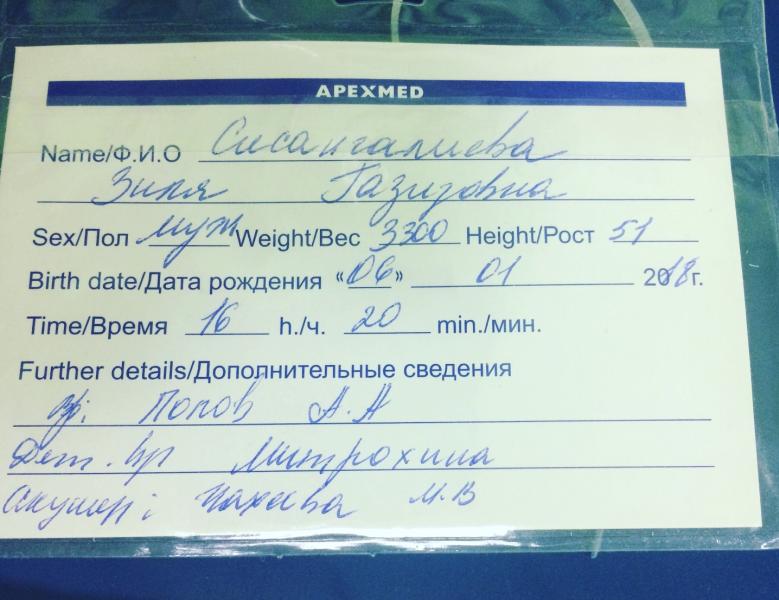 APEXMED
Name/Ф.И.О Сисангалиева
Зиля Газизовна
Sex/Пол муж Weight/Вес 3300 Height/Рост 51
Birth date/Дата рождения «06» 01 2018г.
Time/Время 16 h./ч. 20 min./мин.
Further details/Дополнительные сведения
Вр: Попов А.А
Дет. вр Митрохина
Акушер: М.В